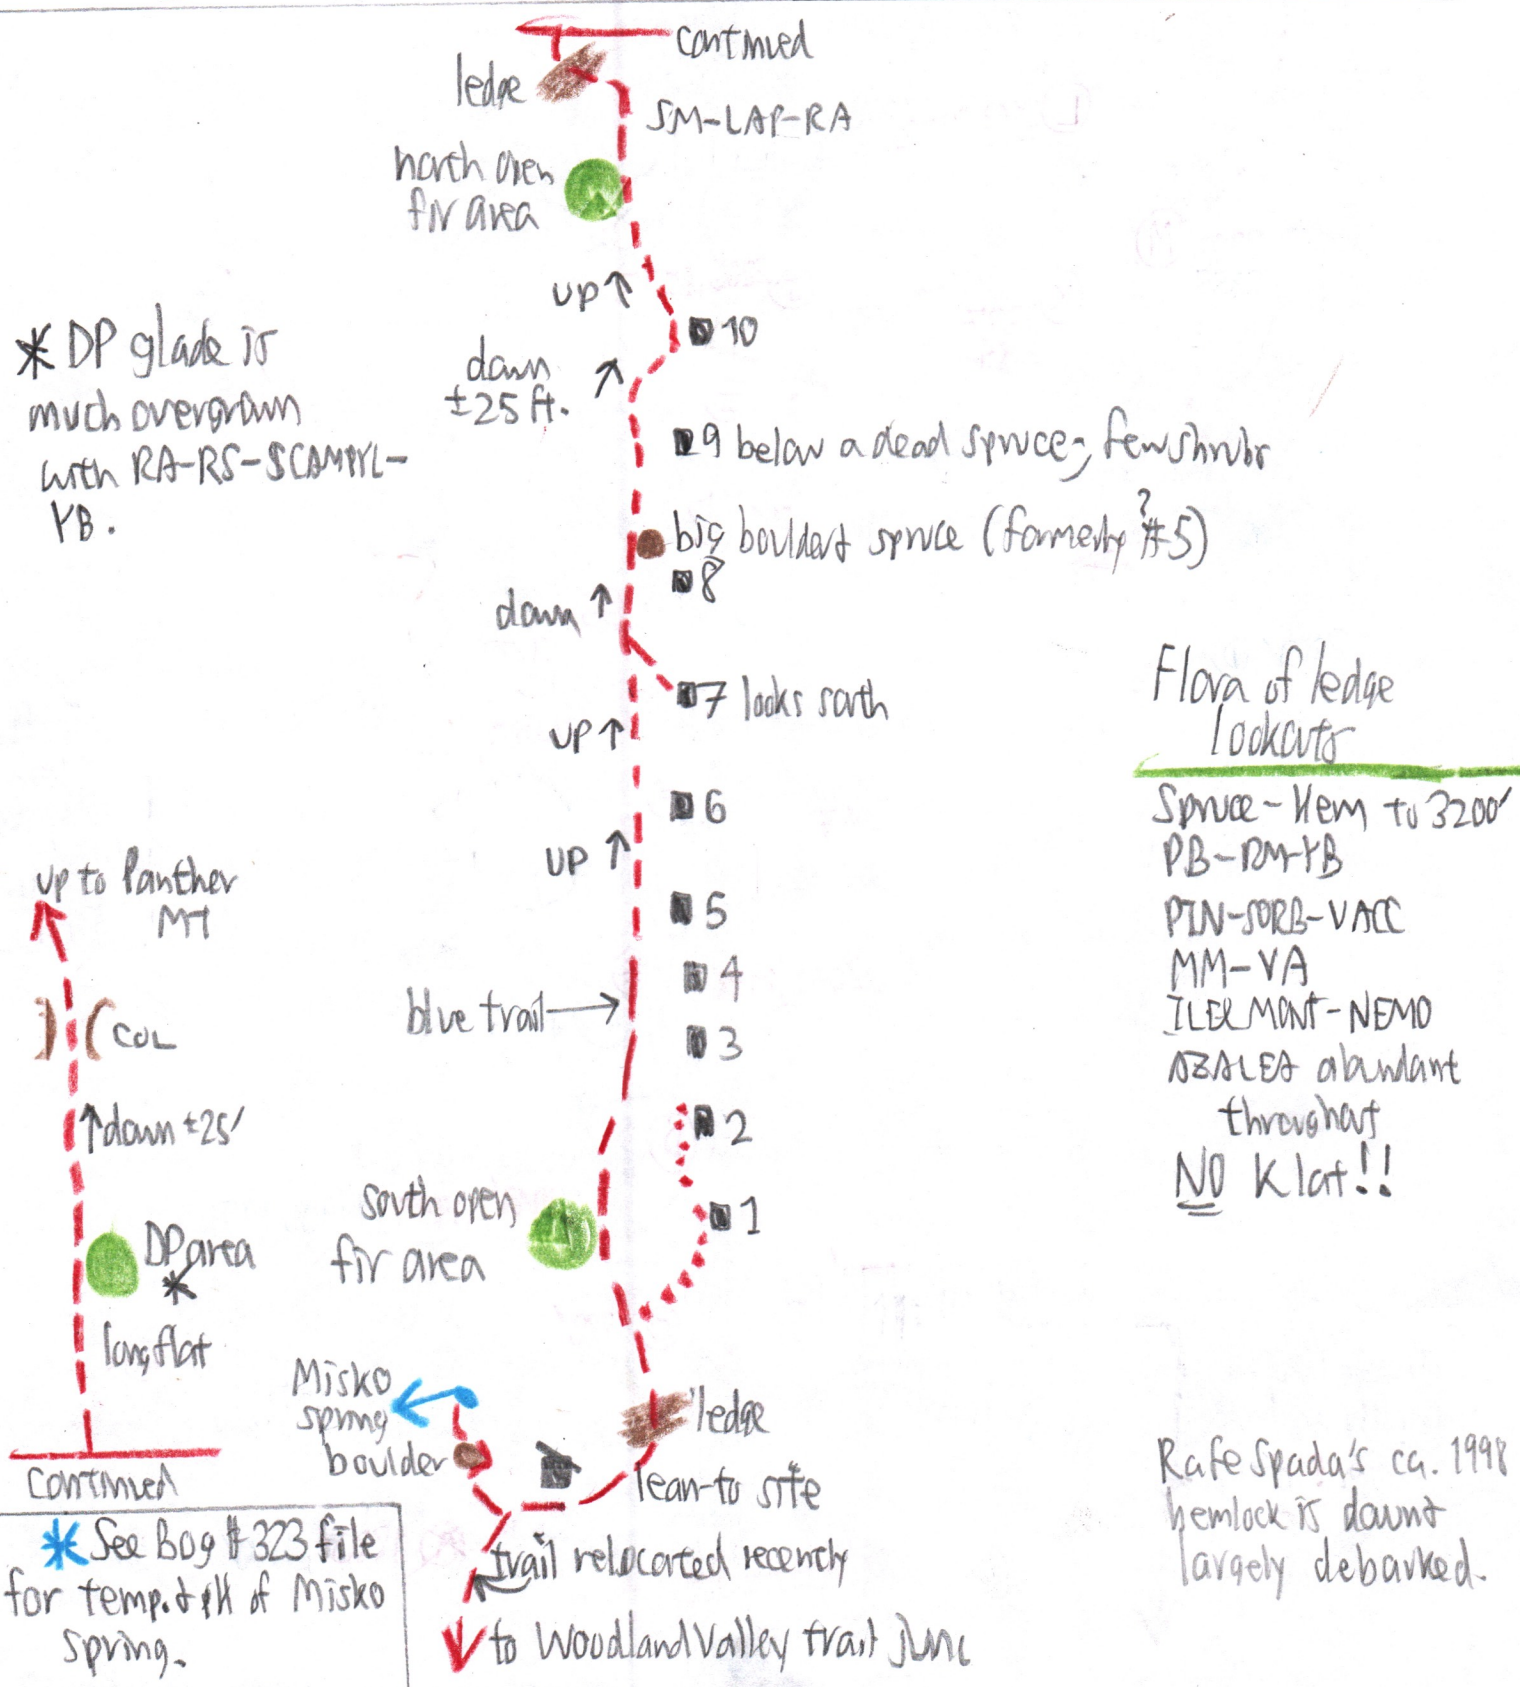 continued
ledge
SM-LAP-RA
north open
fir area
up
10
down
±25 ft.
* DP glade is
much overgrown
with RA-RS-SCAMPYL-
YB.
9 below a dead spruce; few shrubs
big boulder & spruce (formerly #5)
?
8
down
7 looks south
up
6
up
5
4
blue trail
3
2
1
south open
fir area
ledge
lean-to site
Misko
spring
boulder
trail relocated recently
to Woodland Valley trail junc
up to Panther
MT
COL
down ±25'
DP area
*
long flat
continued
* See Bog #323 file
for temp. & pH of Misko
spring.
Flora of ledge
lookouts
Spruce-Hem to 3200'
PB-RM-YB
PIN-SORB-VACC
MM-VA
ILEX MONT-NEMO
AZALEA abundant
throughout
NO K lat!!
Rafe Spada's ca. 1998
hemlock is down &
largely debarked.